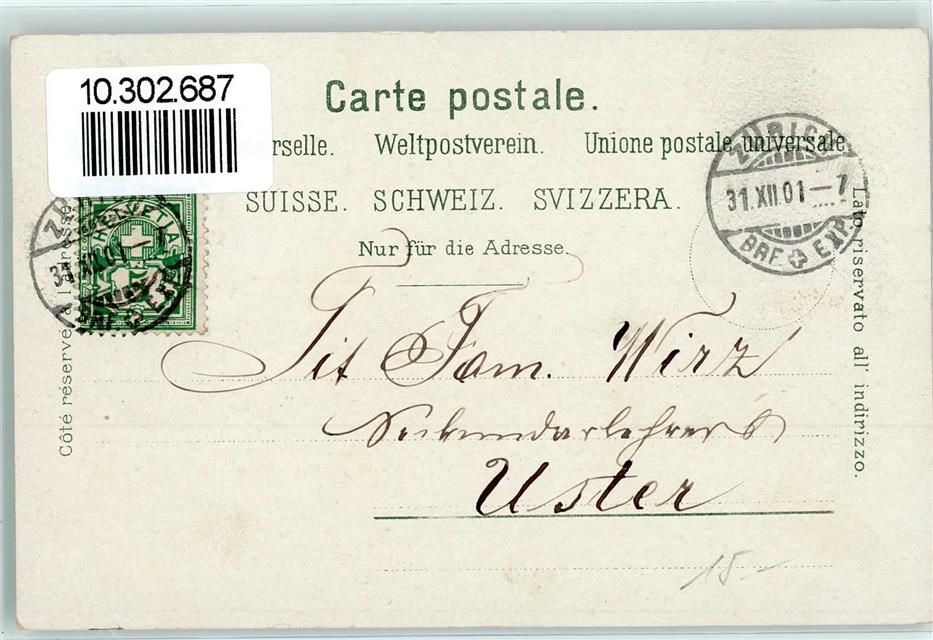 10.302.687
Carte postale.
rselle. Weltpostverein. Unione postale universale.
SUISSE. SCHWEIZ. SVIZZERA.
Nur für die Adresse.
Côté réservé à l'adresse.
Lato riservato all' indirizzo.
HELVETIA
31.XII.01-7
BRF EXP.
ZÜRICH
31.XII.01-7
BRF EXP.
Tit Fam. Wirz
Sekundarlehrers
Uster
15.-